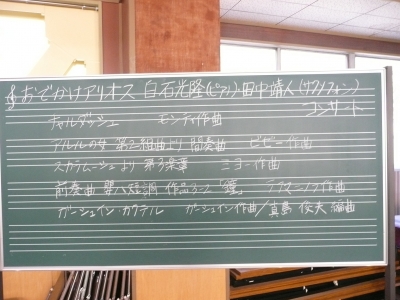 おでかけアリオス 白石光隆(ピアノ)・田中靖人(サクソフォン)
コンサート
チャルダッシュ モンティ作曲
アルルの女 第二組曲より 間奏曲 ビゼー作曲
スカラムーシュより 第3楽章 ミヨー作曲
前奏曲 嬰ハ短調 作品3-2 「鐘」 ラフマニノフ作曲
ガーシュイン・カクテル ガーシュイン作曲/真島俊夫編曲